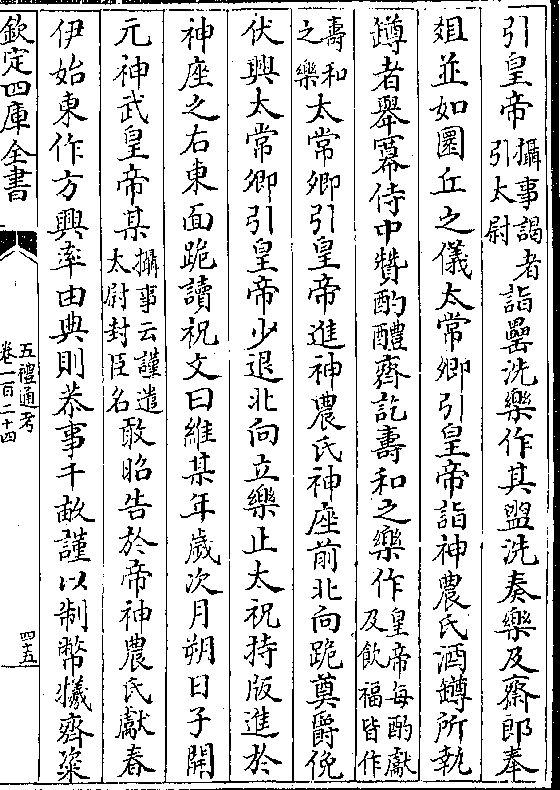 引皇帝攝事謁引太尉者詣罍洗樂作其盥洗奏樂及齋郎奉
俎並如圜丘之儀太常卿引皇帝詣神農氏酒罇所執
罇者舉冪侍中贊酌醴齊訖壽和之樂作皇帝每酌獻及飲福皆作
壽和之樂太常卿引皇帝進神農氏神座前北向跪奠爵俛
伏興太常卿引皇帝少退北向立樂止太祝持版進於
神座之右東面跪讀祝文曰維某年歲次月朔日子開
元神武皇帝某攝事云謹遣太尉封臣名敢昭告於帝神農氏獻春
伊始東作方興率由典則恭事千畝謹以制幣犧齊粢
欽定四庫全書
五禮通考
卷一百二十四
四十五